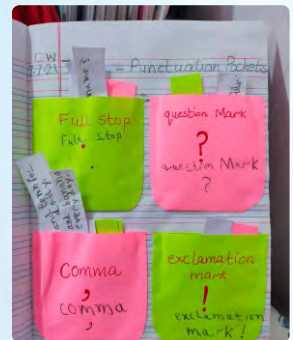 C.W
7.7.21
- Punctuation Pockets
Full stop
Full stop
.
question Mark
?
question Mark
?
Comma
,
comma
,
exclamation
mark
!
exclamation
mark!